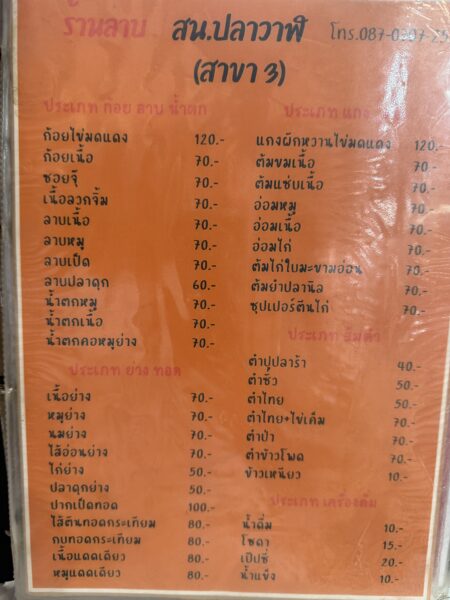 ร้านลาบ สน.ปลาวาฬ
(สาขา 3)
ประเภท กอย ลาบ น้ำตก
ก้อยไข่มดแดง 120.-
ก้อยเนื้อ 70.-
ซอยจุ๊ 70.-
เนื้อลวกจิ้ม 70.-
ลาบเนื้อ 70.-
ลาบหมู 70.-
ลาบเป็ด 70.-
ลาบปลาดุก 60.-
น้ำตกหมู 70.-
น้ำตกเนื้อ 70.-
น้ำตกคอหมูย่าง 70.-
ประเภท ย่าง ทอด
เนื้อย่าง 70.-
หมูย่าง 70.-
นมย่าง 70.-
ไส้อ่อนย่าง 70.-
ไก่ย่าง 50.-
ปลาดุกย่าง 50.-
ปากเป็ดทอด 100.-
ไส้ตันทอดกระเทียม 80.-
กบทอดกระเทียม 80.-
เนื้อแดดเดียว 80.-
หมูแดดเดียว 80.-
ประเภท แกง
แกงผักหวานไข่มดแดง 120.-
ต้มขมเนื้อ 70.-
ต้มแซ่บเนื้อ 70.-
อ่อมหมู 70.-
อ่อมเนื้อ 70.-
อ่อมไก่ 70.-
ต้มไก่ใบมะขามอ่อน 70.-
ต้มยำปลานิล 70.-
ซุปเปอร์ตีนไก่ 70.-
ประเภท ส้มตำ
ตำปูปลาร้า 40.-
ตำซั่ว 50.-
ตำไทย 50.-
ตำไทย+ไข่เค็ม 70.-
ตำป่า 70.-
ตำข้าวโพด 70.-
ข้าวเหนียว 10.-
ประเภท เครื่องดื่ม
น้ำดื่ม 10.-
โซดา 15.-
เป๊ปซี่ 20.-
น้ำแข็ง 10.-